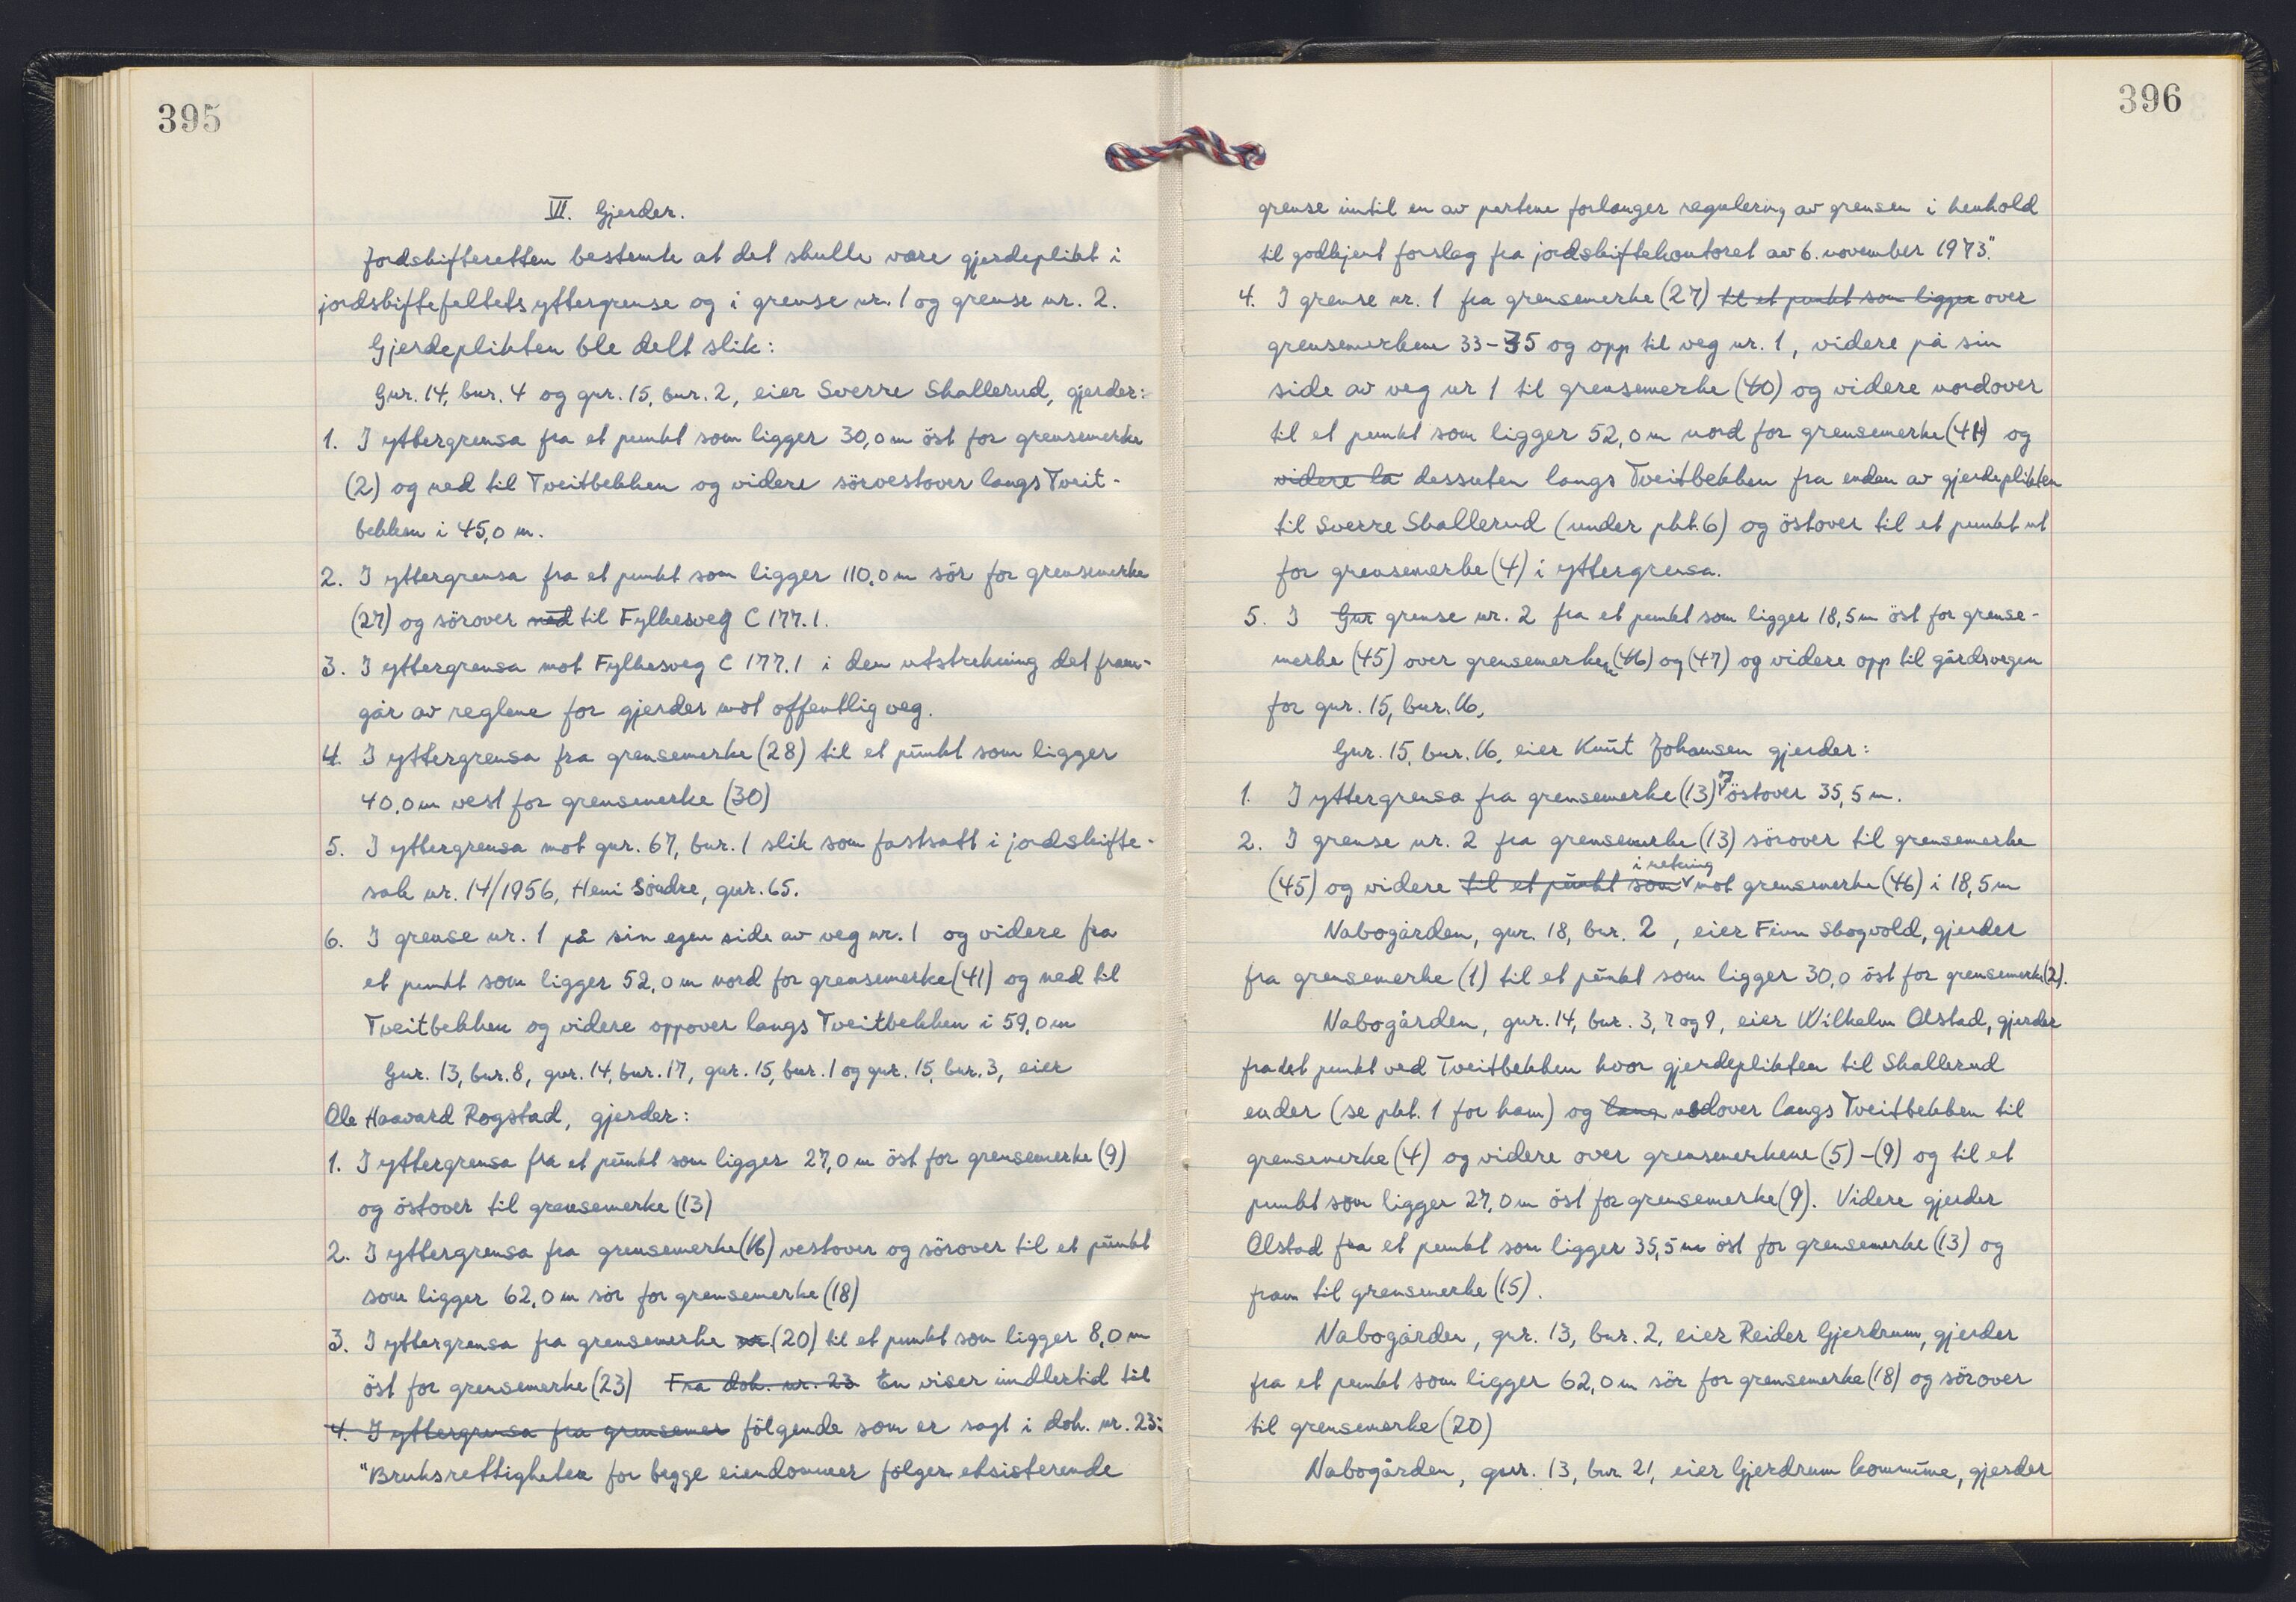 395
VII. Gjerder.
Jordskifteretten bestemte at det skulle være gjerdeplikt i
jordskiftefeltets yttergrense og i grense nr. 1 og grense nr. 2.
Gjerdeplikten ble delt slik:
Gnr. 14, bnr. 4 og gnr. 15, bnr. 2, eier Sverre Skallerud, gjerder:
1. I yttergrensa fra et punkt som ligger 30,0 m öst for grensemerke
(2) og ned til Tveitbekken og videre sörvestover langs Tveit-
bekken i 45,0 m.
2. I yttergrensa fra et punkt som ligger 110,0 m sör for grensemerke
(27) og sörover ned til Fylkesveg C 177.1.
3. I yttergrensa mot Fylkesveg C 177.1 i den utstrekning det fram-
går av reglene for gjerder mot offentlig veg.
4. I yttergrensa fra grensemerke (28) til et punkt som ligger
40,0 m vest for grensemerke (30)
5. I yttergrensa mot gnr. 67, bnr. 1 slik som fastsatt i jordskifte-
sak nr. 14/1956, Heni Söndre, gnr. 65.
6. I grense nr. 1 på sin egen side av veg nr. 1 og videre fra
et punkt som ligger 52,0 m nord for grensemerke (41) og ned til
Tveitbekken og videre oppover langs Tveitbekken i 59,0 m
Gnr. 13, bnr. 8, gnr. 14, bnr. 17, gnr. 15, bnr. 1 og gnr. 15, bnr. 3, eier
Ole Haavard Rogstad, gjerder:
1. I yttergrensa fra et punkt som ligger 27,0 m öst for grensemerke (9)
og östover til grensemerke (13)
2. I yttergrensa fra grensemerke (16) vestover og sörover til et punkt
som ligger 62,0 m sör for grensemerke (18)
3. I yttergrensa fra grensemerke nr. (20) til et punkt som ligger 8,0 m
öst for grensemerke (23) Fra dok. nr. 23 En viser imidlertid til
4. I yttergrensa fra grensemer fölgende som er sagt i dok. nr. 23:
"Bruksrettigheten for begge eiendommer fölger eksisterende
396
grense inntil en av partene forlanger regulering av grensen i henhold
til godkjent forslag fra jordskiftekontoret av 6. november 1973."
4. I grense nr. 1 fra grensemerke (27) til et punkt som ligger over
grensemerkene 33-35 og opp til veg nr. 1, videre på sin
side av veg nr 1 til grensemerke (40) og videre nordover
til et punkt som ligger 52,0 m nord for grensemerke (41) og
videre la dessuten langs Tveitbekken fra enden av gjerdeplikten
til Sverre Skallerud (under pkt. 6) og östover til et punkt nt
for grensemerke (4) i yttergrensa.
5. I Gnr grense nr. 2 fra et punkt som ligger 18,5 m öst for grense-
merke (45) over grensemerkene (46) og (47) og videre opp til gårdsvegen
for gnr. 15, bnr. 16,
Gnr. 15, bnr. 16, eier Knut Johansen gjerder:
1. I yttergrensa fra grensemerke (13) östover 35,5 m.
2. I grense nr. 2 fra grensemerke (13) sörover til grensemerke
i retning
(45) og videre til et punkt som mot grensemerke (46) i 18,5 m
Nabogården, gnr. 18, bnr. 2, eier Finn Skogvold, gjerder
fra grensemerke (1) til et punkt som ligger 30,0 öst for grensemerke (2).
Nabogården, gnr. 14, bnr. 3, 7 og 9, eier Wilhelm Olstad, gjerder
fra det punkt ved Tveitbekken hvor gjerdeplikten til Skallerud
ender (se pkt. 1 for ham) og lang nedover langs Tveitbekken til
grensemerke (4) og videre over grensemerkene (5)-(9) og til et
punkt som ligger 27,0 m öst for grensemerke (9). Videre gjerder
Olstad fra et punkt som ligger 35,5 m öst for grensemerke (13) og
fram til grensemerke (15).
Nabogården, gnr. 13, bnr. 2, eier Reider Gjerdrum, gjerder
fra et punkt som ligger 62,0 m sör for grensemerke (18) og sörover
til grensemerke (20)
Nabogården, gnr. 13, bnr 21, eier Gjerdrum kommune, gjerder